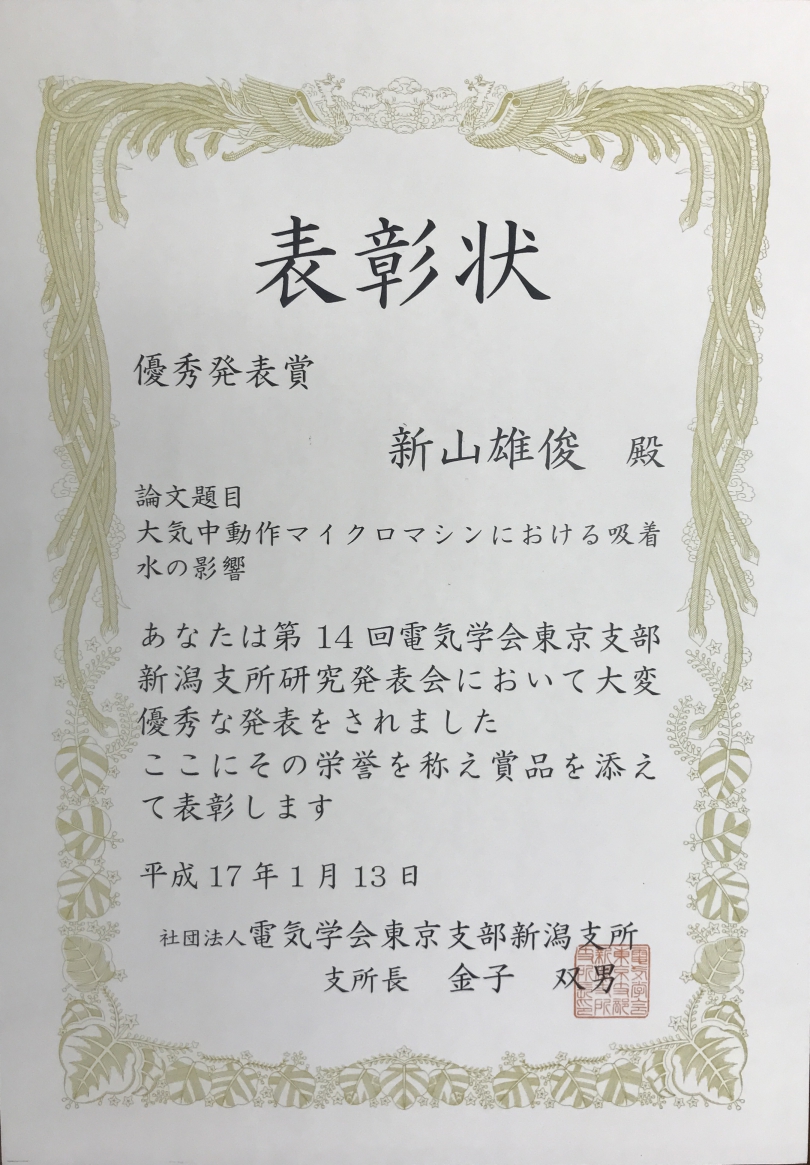 表彰状
優秀発表賞
新山雄俊 殿
論文題目
大気中動作マイクロマシンにおける吸着
水の影響
あなたは第14回電気学会東京支部
新潟支所研究発表会において大変
優秀な発表をされました
ここにその栄誉を称え賞品を添え
て表彰します
平成17年1月13日
社団法人電気学会東京支部新潟支所
支所長 金子 双男